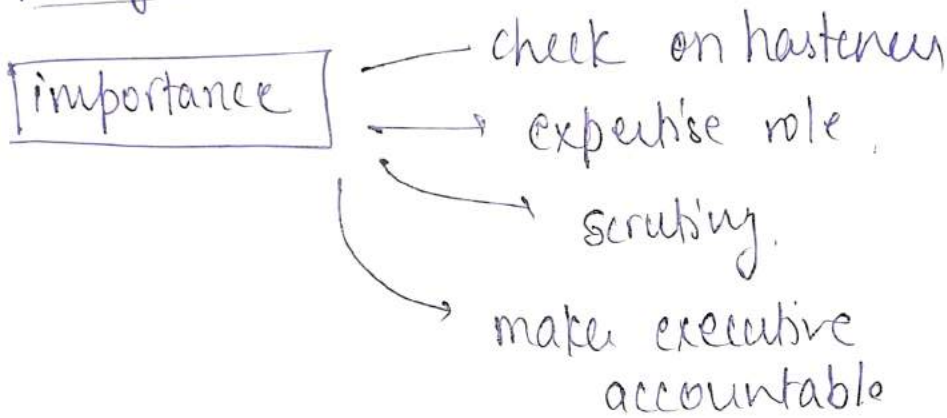 importance
check on hasteness
expertise role.
scrutiny.
makes executive
accountable